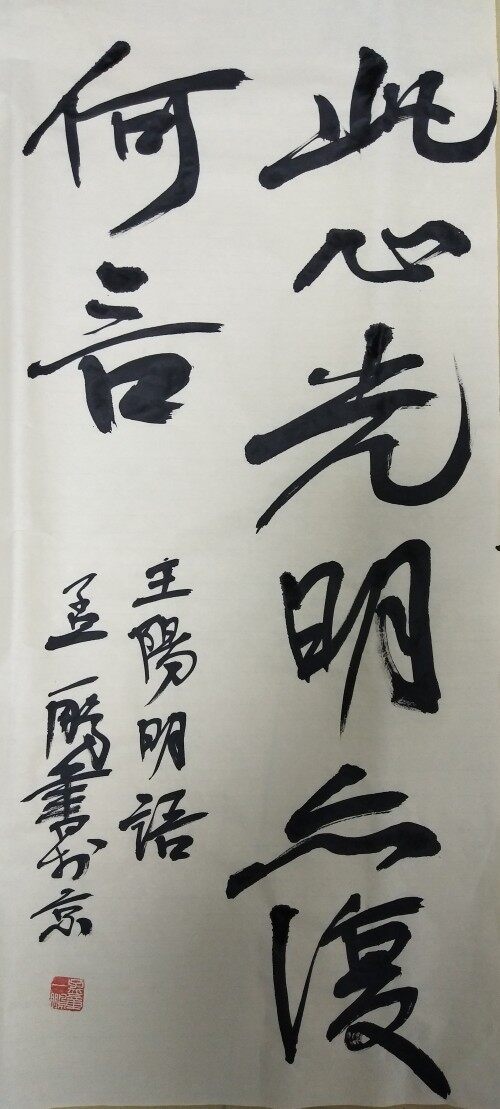 此心光明亦復
何言
王陽明語
孟一鵬書於京